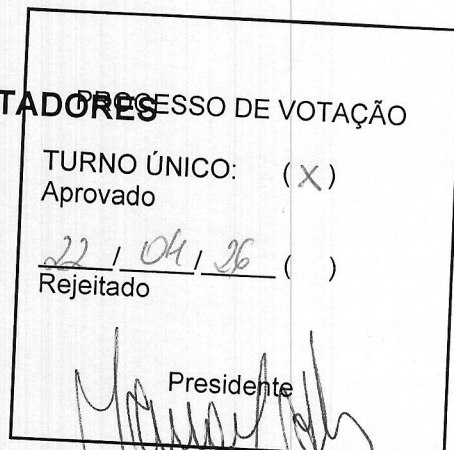 TADORES
PROCESSO DE VOTAÇÃO
TURNO ÚNICO: (X)
Aprovado
22 / 04 / 26 ( )
Rejeitado
Presidente